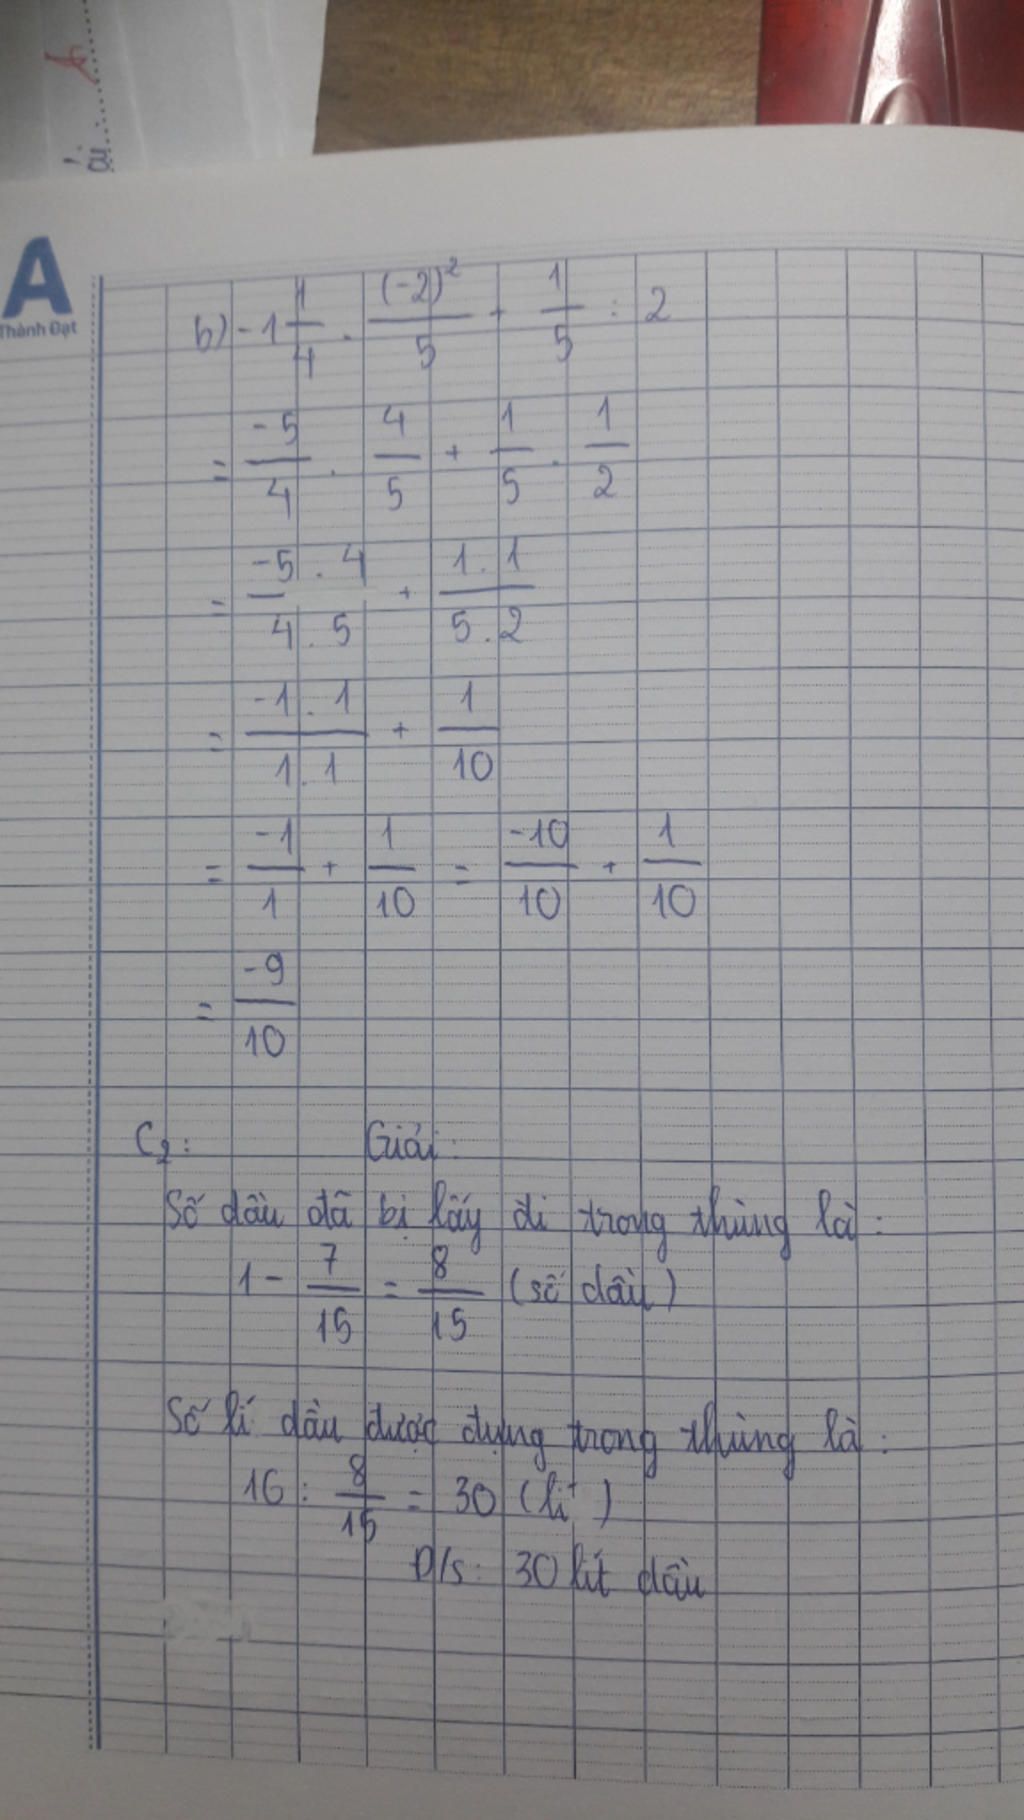 ái
A
Thành Đạt
b) -1 1/4 . (-2)²/5 + 1/5 : 2
= -5/4 . 4/5 + 1/5 . 1/2
= -5 . 4/4 . 5 + 1 . 1/5 . 2
= -1 . 1/1 . 1 + 1/10
= -1/1 + 1/10 = -10/10 + 1/10
= -9/10
C2: Giải:
Số dầu đã bị lấy đi trong thùng là:
1 - 7/15 = 8/15 (số dầu)
Số lí dầu được đựng trong thùng là:
16 : 8/15 = 30 (lít)
Đ/s: 30 lít dầu